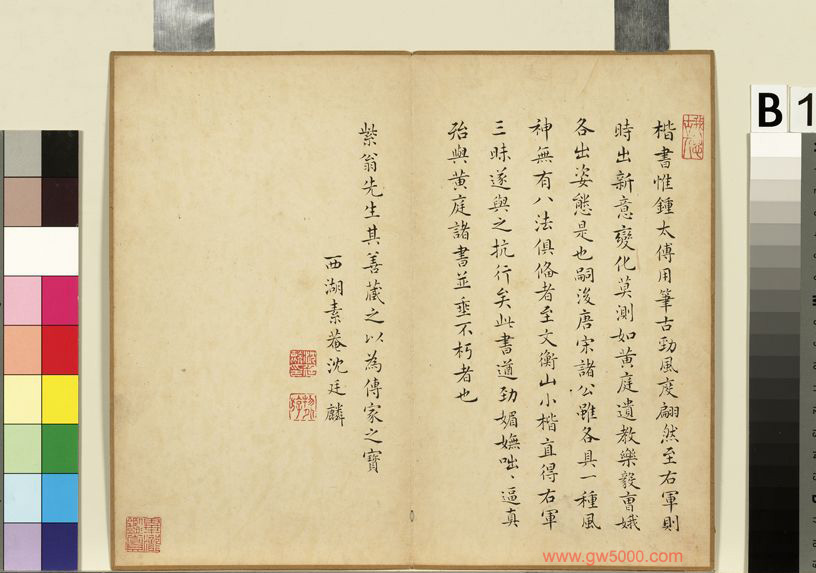 楷書惟鍾太傅用筆古勁風度翩然至右軍則
時出新意變化莫測如黃庭遺教樂毅曹娥
各出姿態是也嗣後唐宋諸公雖各具一種風
神無有八法俱備者至文衡山小楷直得右軍
三昧遂與之抗行矣此書遒勁媚嫵咄、逼真
殆與黃庭諸書並垂不朽者也
紫翁先生其善藏之以為傳家之寶
西湖素菴沈廷麟
www.gw5000.com
B 1